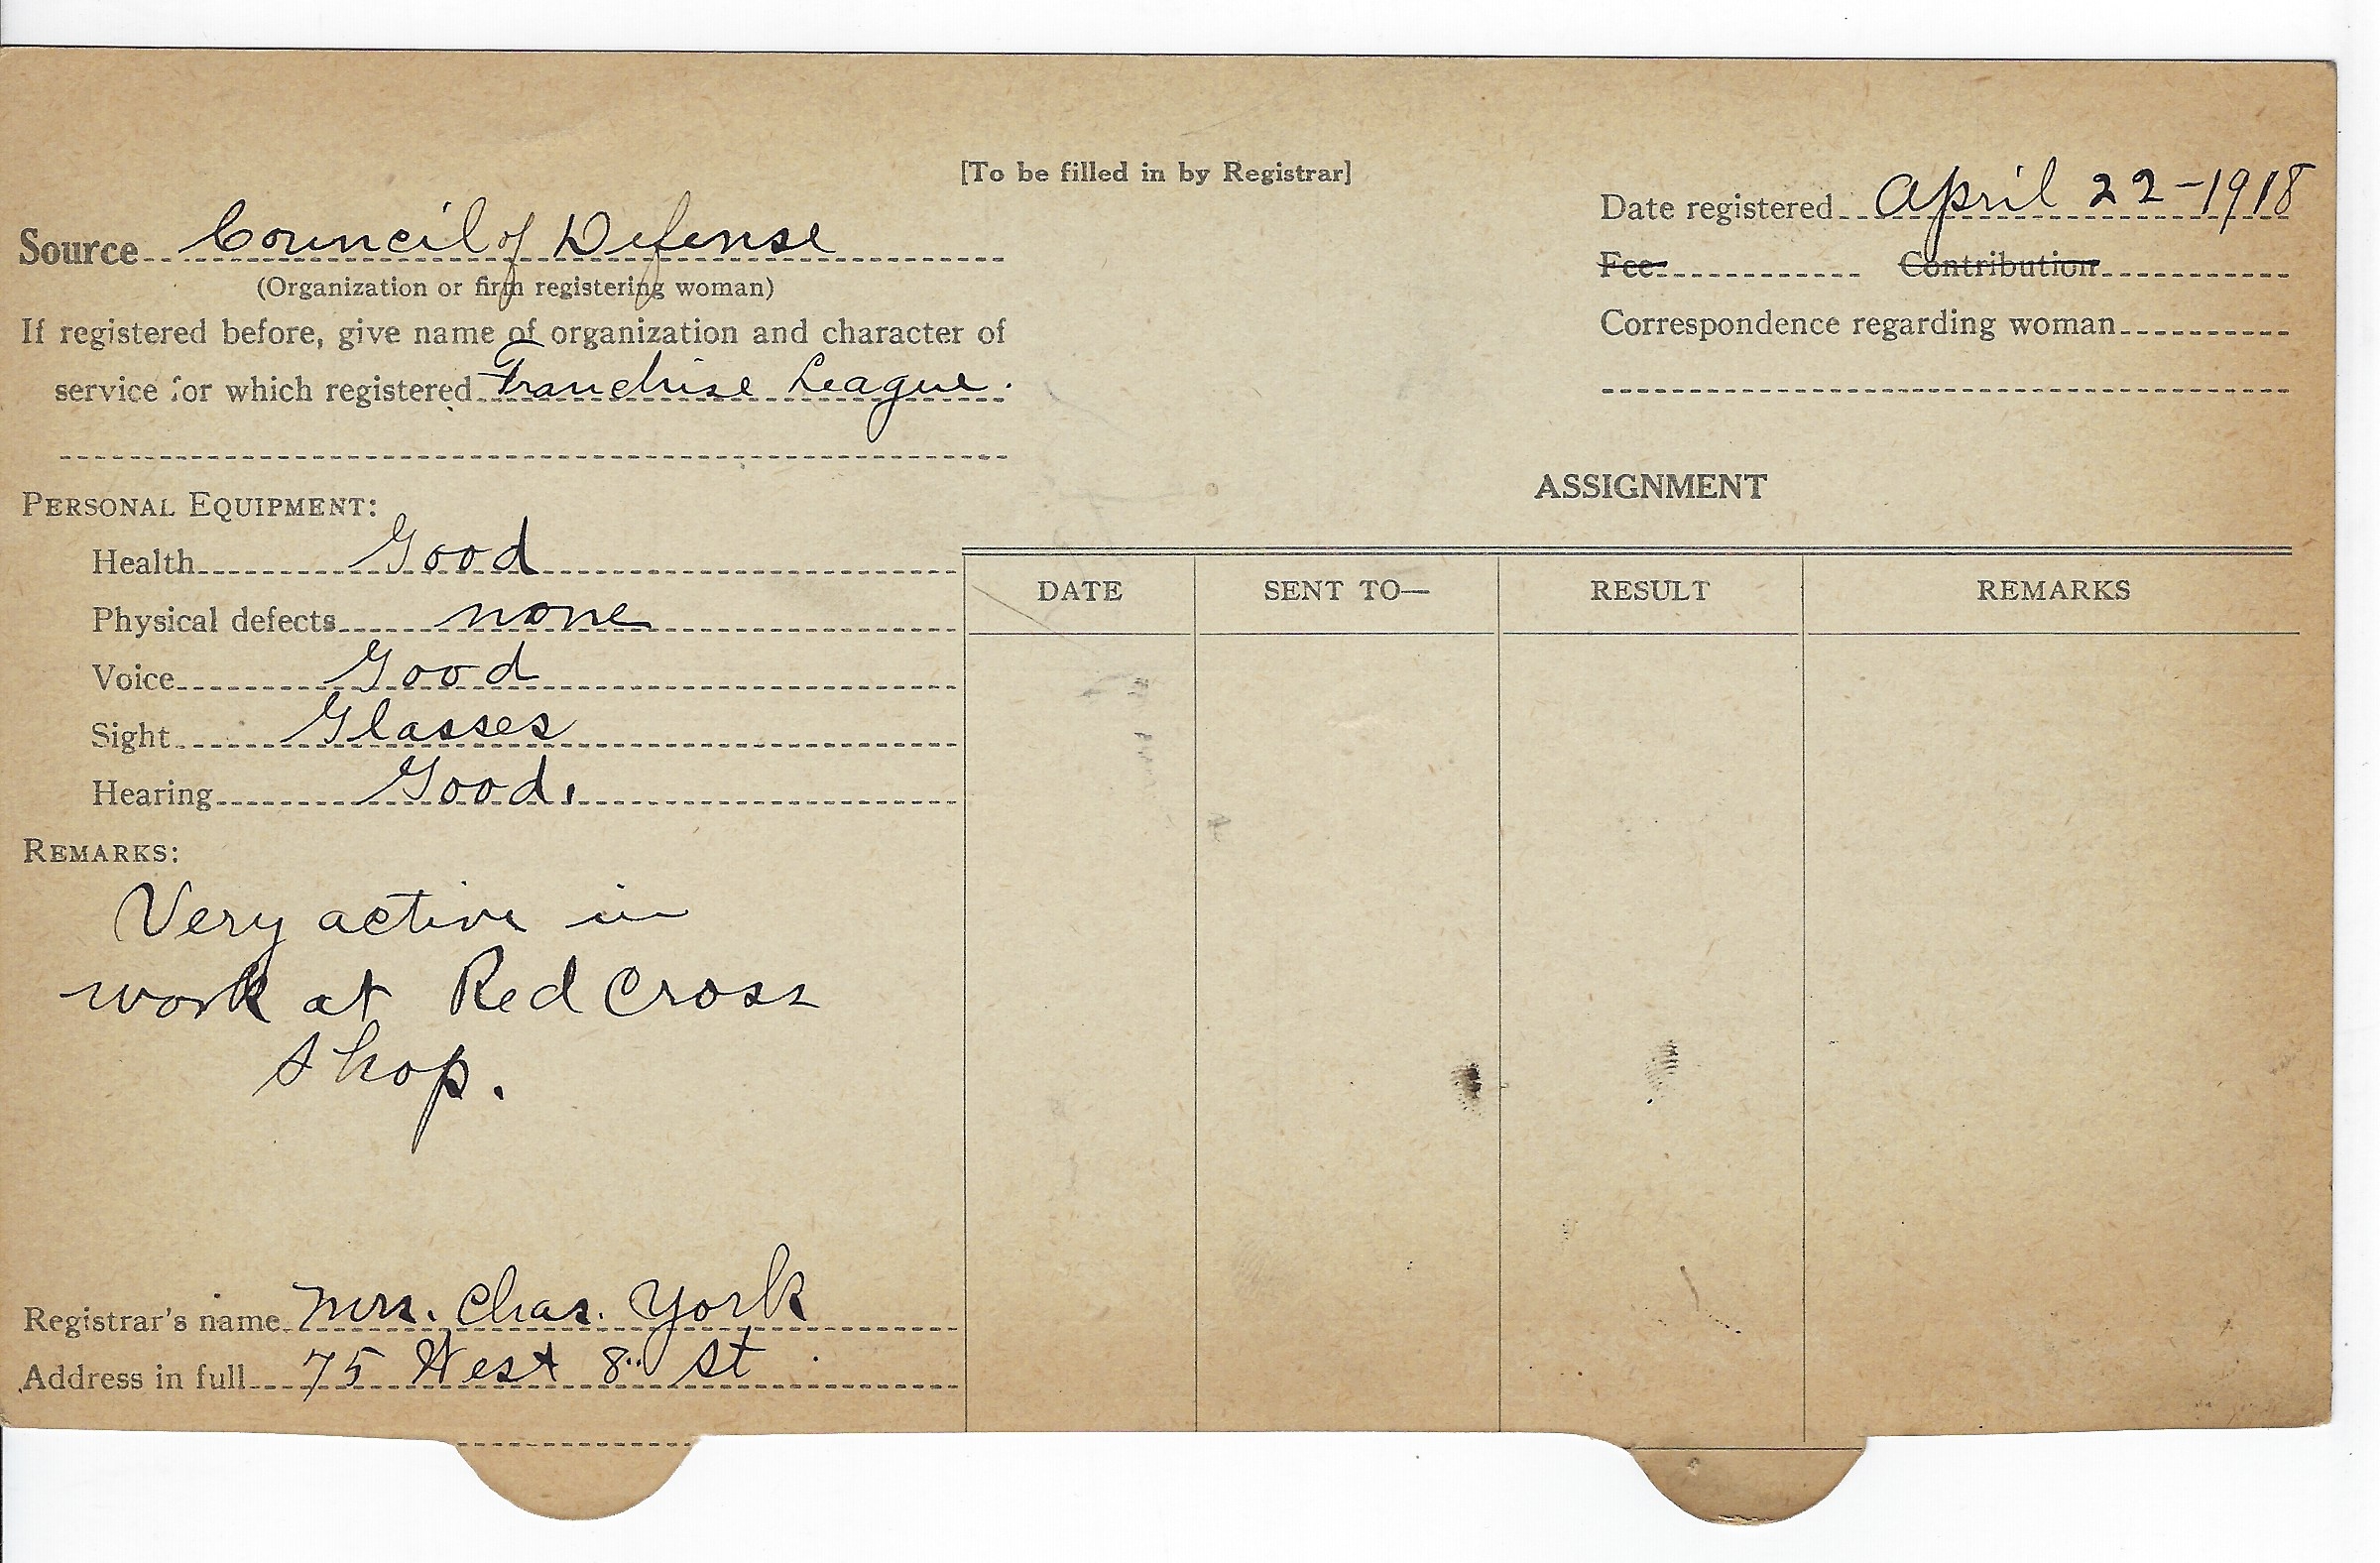 [To be filled in by Registrar]
Source Council of Defense
(Organization or firm registering woman)
If registered before, give name of organization and character of
service for which registered Franchise League.
Date registered April 22-1918
Fee Contribution
Correspondence regarding woman
PERSONAL EQUIPMENT:
Health Good
Physical defects none
Voice Good
Sight Glasses
Hearing Good.
REMARKS:
Very active in
work at Red Cross
shop.
Registrar's name Mrs. Chas. York
Address in full 75 West 8" St
ASSIGNMENT
DATE SENT TO— RESULT REMARKS